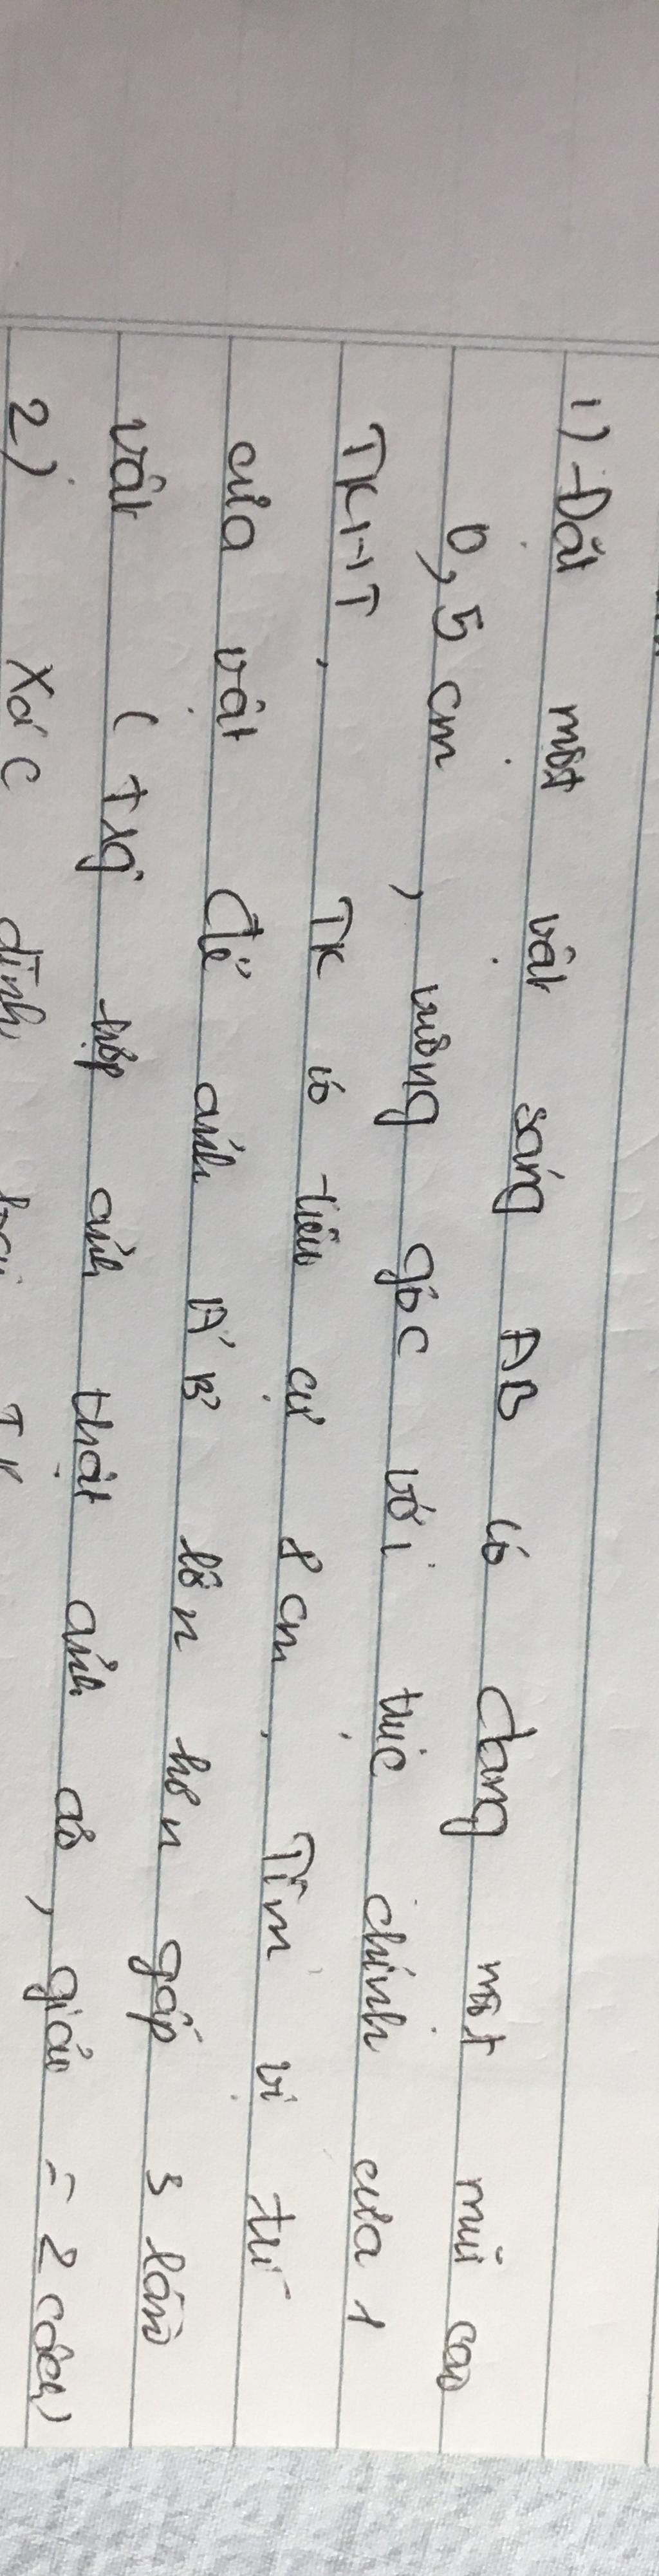 1) Đặt một vật sáng AB có dạng một mũi cao
0,5 cm, vuông góc với trục chính của 1
TKHT, TK có tiêu cự 8 cm. Tìm vị trí
của vật để ảnh A'B' lớn hơn gấp 3 lần
vật (Trg hợp ảnh thật ảnh ảo, giải = 2 cách)
2) Xác định loại TK